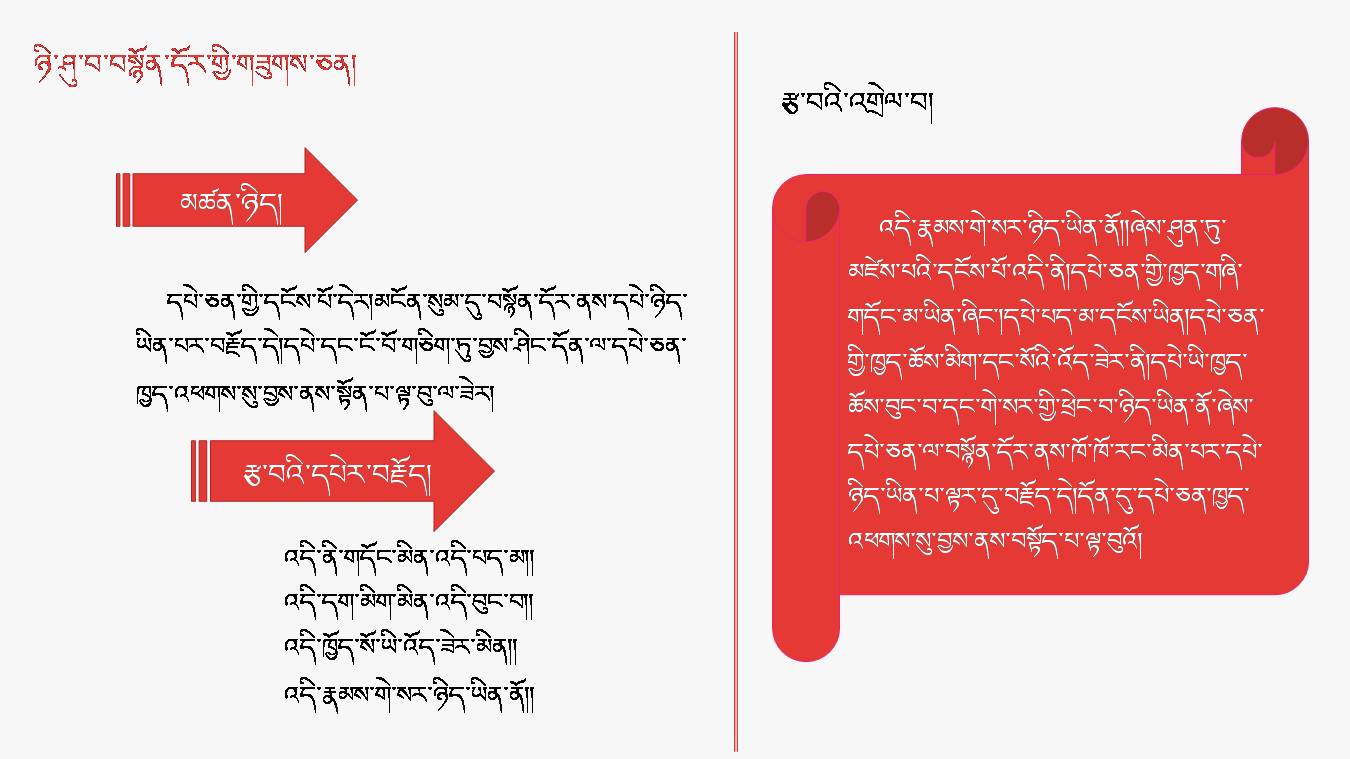 ཉི་ཤུ་བ་བསྙོན་དོར་གྱི་གཟུགས་ཅན།
མཚན་ཉིད།
དཔེ་ཅན་གྱི་དངོས་པོ་དེར།མངོན་སུམ་དུ་བསྙོན་དོར་ནས་དཔེ་ཉིད་
ཡིན་པར་བརྗོད་དེ།དཔེ་དང་ངོ་བོ་གཅིག་ཏུ་བྱས་ཤིང་དོན་ལ་དཔེ་ཅན་
ཁྱད་འཕགས་སུ་བྱས་ནས་སྟོན་པ་ལྟ་བུ་ལ་ཟེར།
རྩ་བའི་དཔེར་བརྗོད།
འདི་ནི་གདོང་མིན་འདི་པད་མ།།
འདི་དག་མིག་མིན་འདི་བུང་བ།།
འདི་ཁྱོད་སོ་ཡི་འོད་ཟེར་མིན།།
འདི་རྣམས་གེ་སར་ཉིད་ཡིན་ནོ།།
རྩ་བའི་འགྲེལ་བ།
འདི་རྣམས་གེ་སར་ཉིད་ཡིན་ནོ།།ཞེས་ཤུན་ཏུ་
མཛེས་པའི་དངོས་པོ་འདི་ནི།དཔེ་ཅན་གྱི་ཁྱད་གཞི་
གདོང་མ་ཡིན་ཞིང་།དཔེ་པད་མ་དངོས་ཡིན།དཔེ་ཅན་
གྱི་ཁྱད་ཆོས་མིག་དང་སོའི་འོད་ཟེར་ནི།དཔེ་ཡི་ཁྱད་
ཆོས་བུང་བ་དང་གེ་སར་གྱི་ཕྲེང་བ་ཉིད་ཡིན་ནོ་ཞེས་
དཔེ་ཅན་ལ་བསྙོན་དོར་ནས་ཁོ་ཁོ་རང་མིན་པར་དཔེ་
ཉིད་ཡིན་པ་ལྟར་དུ་བརྗོད་དེ།དོན་དུ་དཔེ་ཅན་ཁྱད་
འཕགས་སུ་བྱས་ནས་བསྟོད་པ་ལྟ་བུའོ།